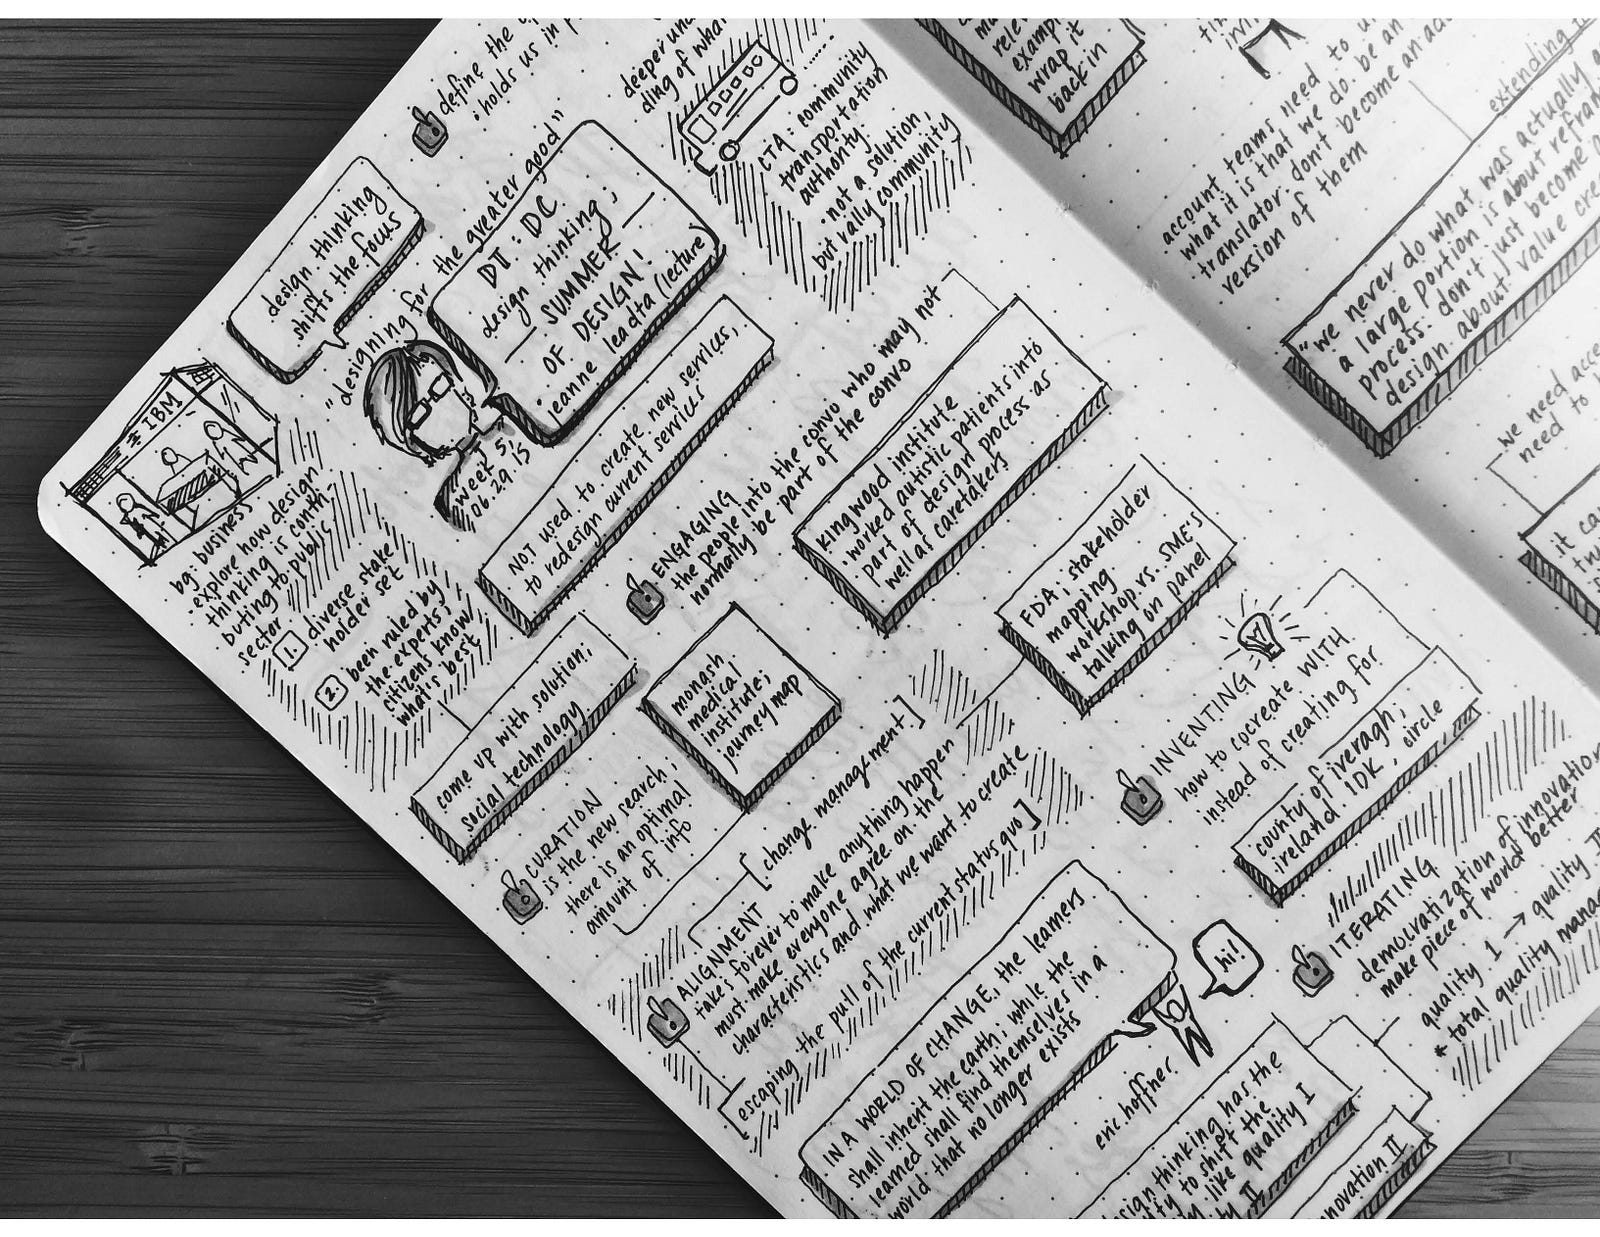 define the
holds us in
deeper un
ding of what
CTA: community
transportation
authority
·not a solution,
but rally community
design thinking
shifts the focus
"designing for the greater good"
DT: DC
design thinking;
SUMMER
OF DESIGN!
jeanne leadta (lecture)
week 5,
06.29.15
IBM
bg: business
explore how design
thinking is contri-
buting to public
sector
1. diverse stake
holder set
2. been ruled by
the experts
citizens know
what's best
NOT used to create new services,
to redesign current services
ENGAGING
the people into the convo who may not
normally be part of the convo
kingwood institute
·worked autistic patients into
part of design process as
well as caretakers
FDA; stakeholder
mapping
workshop vs. SME's
talking on panel
come up with solution;
social technology
monash
medical
institute;
journey map
CURATION
is the new search;
there is an optimal
amount of info
[change management]
ALIGNMENT
takes forever to make anything happen
must make everyone agree on the
characteristics and what we want to create
escaping the pull of the current status quo]
INVENTING
how to cocreate WITH
instead of creating for
county of iveragh;
ireland. IDK,
circle
ITERATING
democratization of innovation
make piece of world better
quality I → quality II
* total quality mana
IN A WORLD OF CHANGE, the learners
shall inherit the earth; while the
learned shall find themselves in a
world that no longer exists
hi!
eric hoffner
sign thinking has the
ty to shift the
like quality I
II
nnovation II
rele
exampl
wrap it
back in
account teams need to u
what it is that we do. be an
translator. don't become an ac
version of them
extending
"we never do what was actually a
a large portion is about refram
process. don't just become
design. about value cre
we need acce
need to
it ca